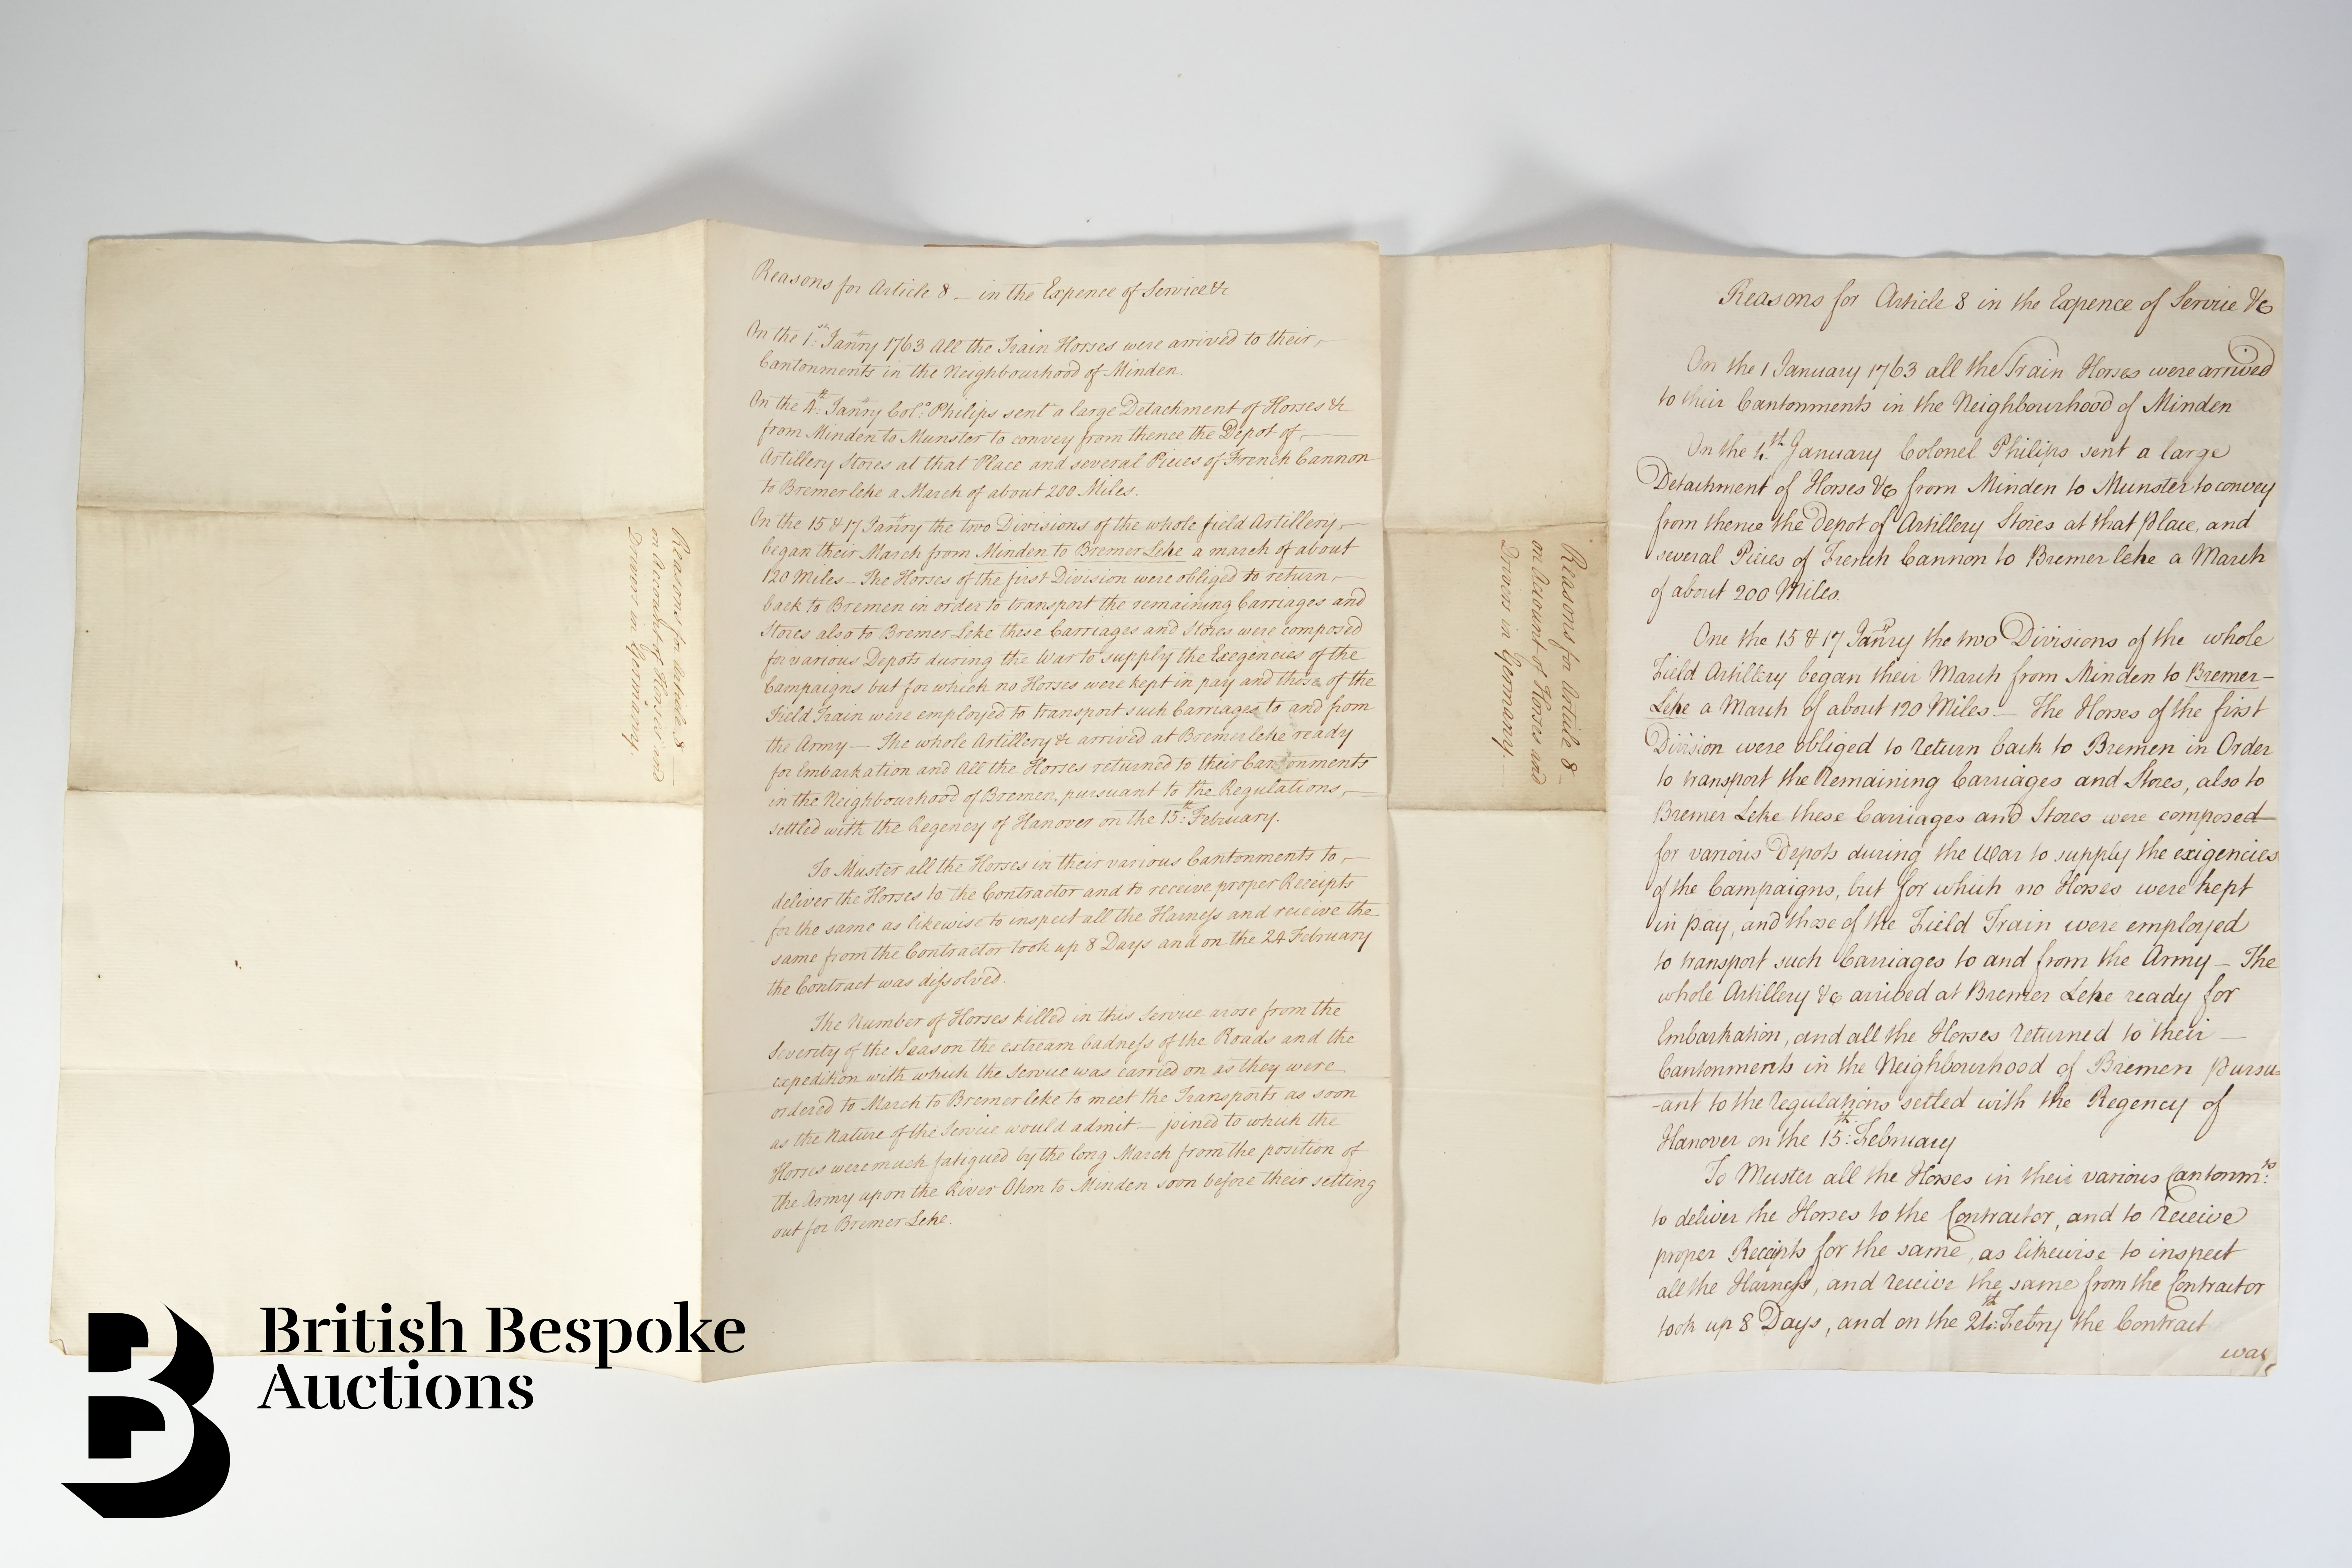 Reasons for Article 8 —
on Account of Horses and
Drivers in Germany.
Reasons for Article 8 — in the Expence of Service &c
On the 1st Janry 1763 All the Train Horses were arrived to their
Cantonments in the Neighbourhood of Minden.
On the 4th Janry Colo. Philips sent a large Detachment of Horses &c
from Minden to Munster to convey from thence the Depot of
Artillery Stores at that Place and several Pieces of French Cannon
to Bremerleke a March of about 200 Miles.
On the 15 & 17 Janry the two Divisions of the whole field Artillery
began their March from Minden to Bremer Leke a march of about
120 Miles — The Horses of the first Division were obliged to return
back to Bremen in order to transport the remaining Carriages and
Stores also to Bremer Leke these Carriages and Stores were composed
for various Depots during the War to supply the Exegencies of the
Campaigns but for which no Horses were kept in pay and those of the
Field Train were employed to transport such Carriages to and from
the Army — The whole Artillery &c arrived at Bremerleke ready
for Embarkation and All the Horses returned to their Cantonments
in the Neighbourhood of Bremen, pursuant to the Regulations,
settled with the Regency of Hanover on the 15th February.
To Muster all the Horses in their various Cantonments to
deliver the Horses to the Contractor and to receive proper Receipts
for the same as likewise to inspect all the Harness and receive the
same from the Contractor took up 8 Days and on the 24 February
the Contract was dissolved.
The Number of Horses killed in this Service arose from the
Severity of the Season the extream badness of the Roads and the
expedition with which the Service was carried on as they were
ordered to March to Bremerleke to meet the Transports as soon
as the Nature of the Service would admit — joined to which the
Horses were much fatigued by the long March from the position of
the Army upon the River Ohm to Minden soon before their setting
out for Bremer Leke.
Reasons for Article 8 —
on Account of Horses and
Drivers in Germany. —
Reasons for Article 8 in the Expence of Service &c
On the 1 January 1763 all the Train Horses were arrived
to their Cantonments in the Neighbourhood of Minden
On the 4th January Colonel Philips sent a large
Detachment of Horses &c from Minden to Munster to convey
from thence the Depot of Artillery Stores at that place, and
several Pieces of French Cannon to Bremer leke a March
of about 200 Miles.
One the 15 & 17 Janry the two Divisions of the whole
Field Artillery began their March from Minden to Bremer-
Leke a March of about 120 Miles — The Horses of the first
Division were obliged to return back to Bremen in Order
to transport the Remaining Carriages and Stores, also to
Bremer Leke these Carriages and Stores were composed
for various Depots during the War to supply the exigencies
of the Campaigns, but for which no Horses were kept
in pay, and those of the Field Train were employed
to transport such Carriages to and from the Army — The
whole Artillery &c arrived at Bremer Leke ready for
Embarkation, and all the Horses returned to their —
Cantonments in the Neighbourhood of Bremen pursu=
-ant to the regulations settled with the Regency of
Hanover on the 15th: February
To Muster all the Horses in their various Cantonmts:
to deliver the Horses to the Contractor, and to receive
proper Receipts for the same, as likewise to inspect
all the Harness, and receive the same from the Contractor
took up 8 Days, and on the 24th: Febry the Contract
was
British Bespoke
Auctions